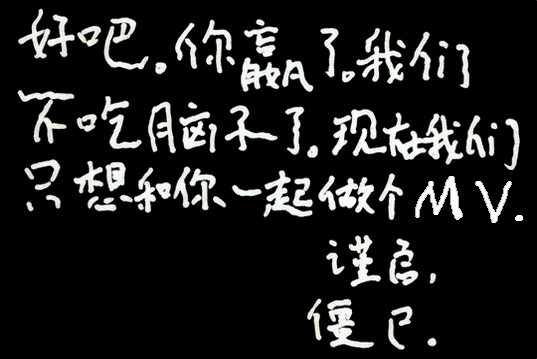 好吧。你赢了。我们
不吃脑子了。现在我们
只想和你一起做个MV.
谨启,
僵尸.